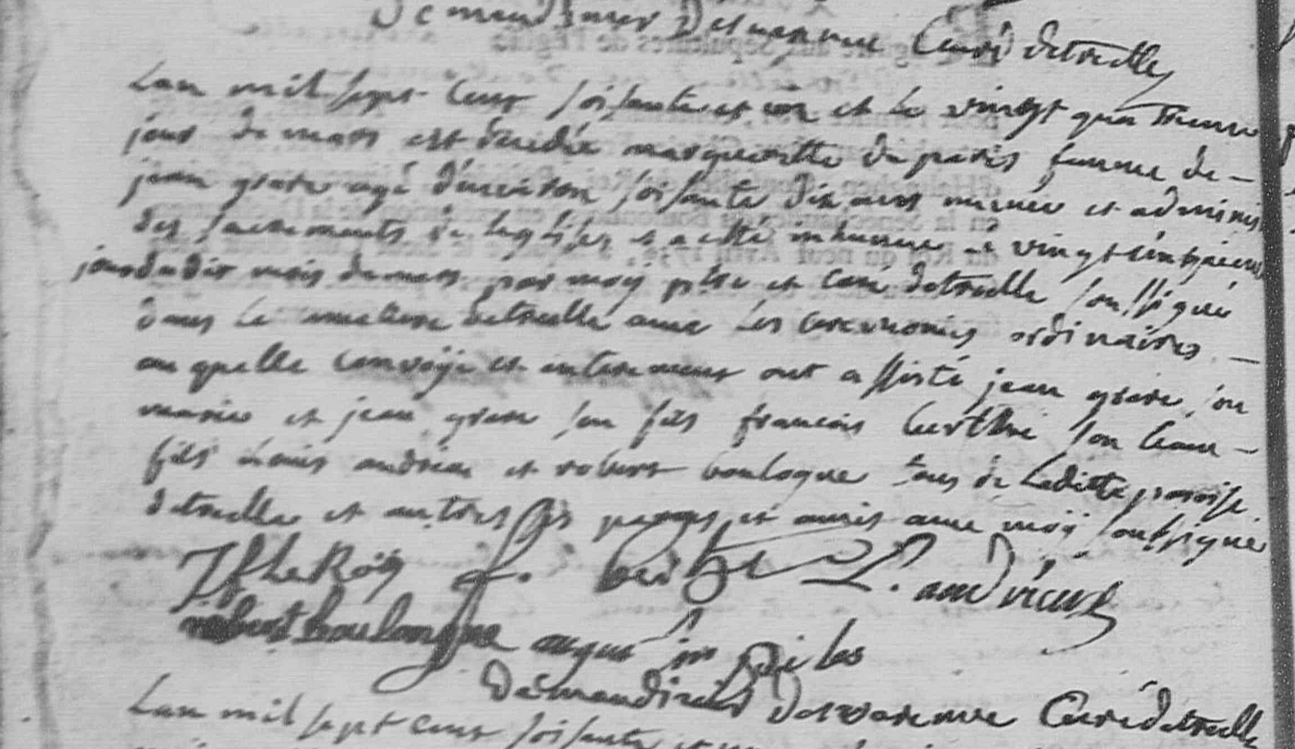 Demandimer Desvarenne Curé detreelles
Lan mil sept Cens soisante et un et le vingt quatrieme
jour de mars est decedée margueritte du paris femme de -
jean grare agé d'environ soisante dix ans munie et adminis
des sacrements de leglise et a etté inhumée le vingt cinquieme
jour dudit mois de mars par moy ptre et Curé detreelle soussigné
dans le cimetiere detreelle avec les ceremonies ordinaires -
au quelle convoÿe et enterement ont assisté jean grare son
marie et jean grare son fils francois berthe son beau -
fils Louis andrieu et robert boulogne tous de Laditte paroisse
detreelle et autres pares et amis avec moÿ soussigné
JF LeRoÿ f. berthe L. andrieux
robert boulongne augustin
Demandimer Desvarenne Curé detreelle
Lan mil sept cens soisante et un